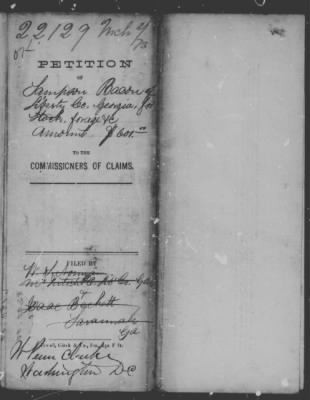 22129 Mch 21/73
PETITION
OF
Sampson Bacon of
Liberty Co. Georgia, for
Stock, forage &c
Amount $601.00
TO THE
COMMISSIONERS OF CLAIMS.
FILED BY
Isaac Beckett
Savannah
Ga
W Penn Clarke
Washington DC